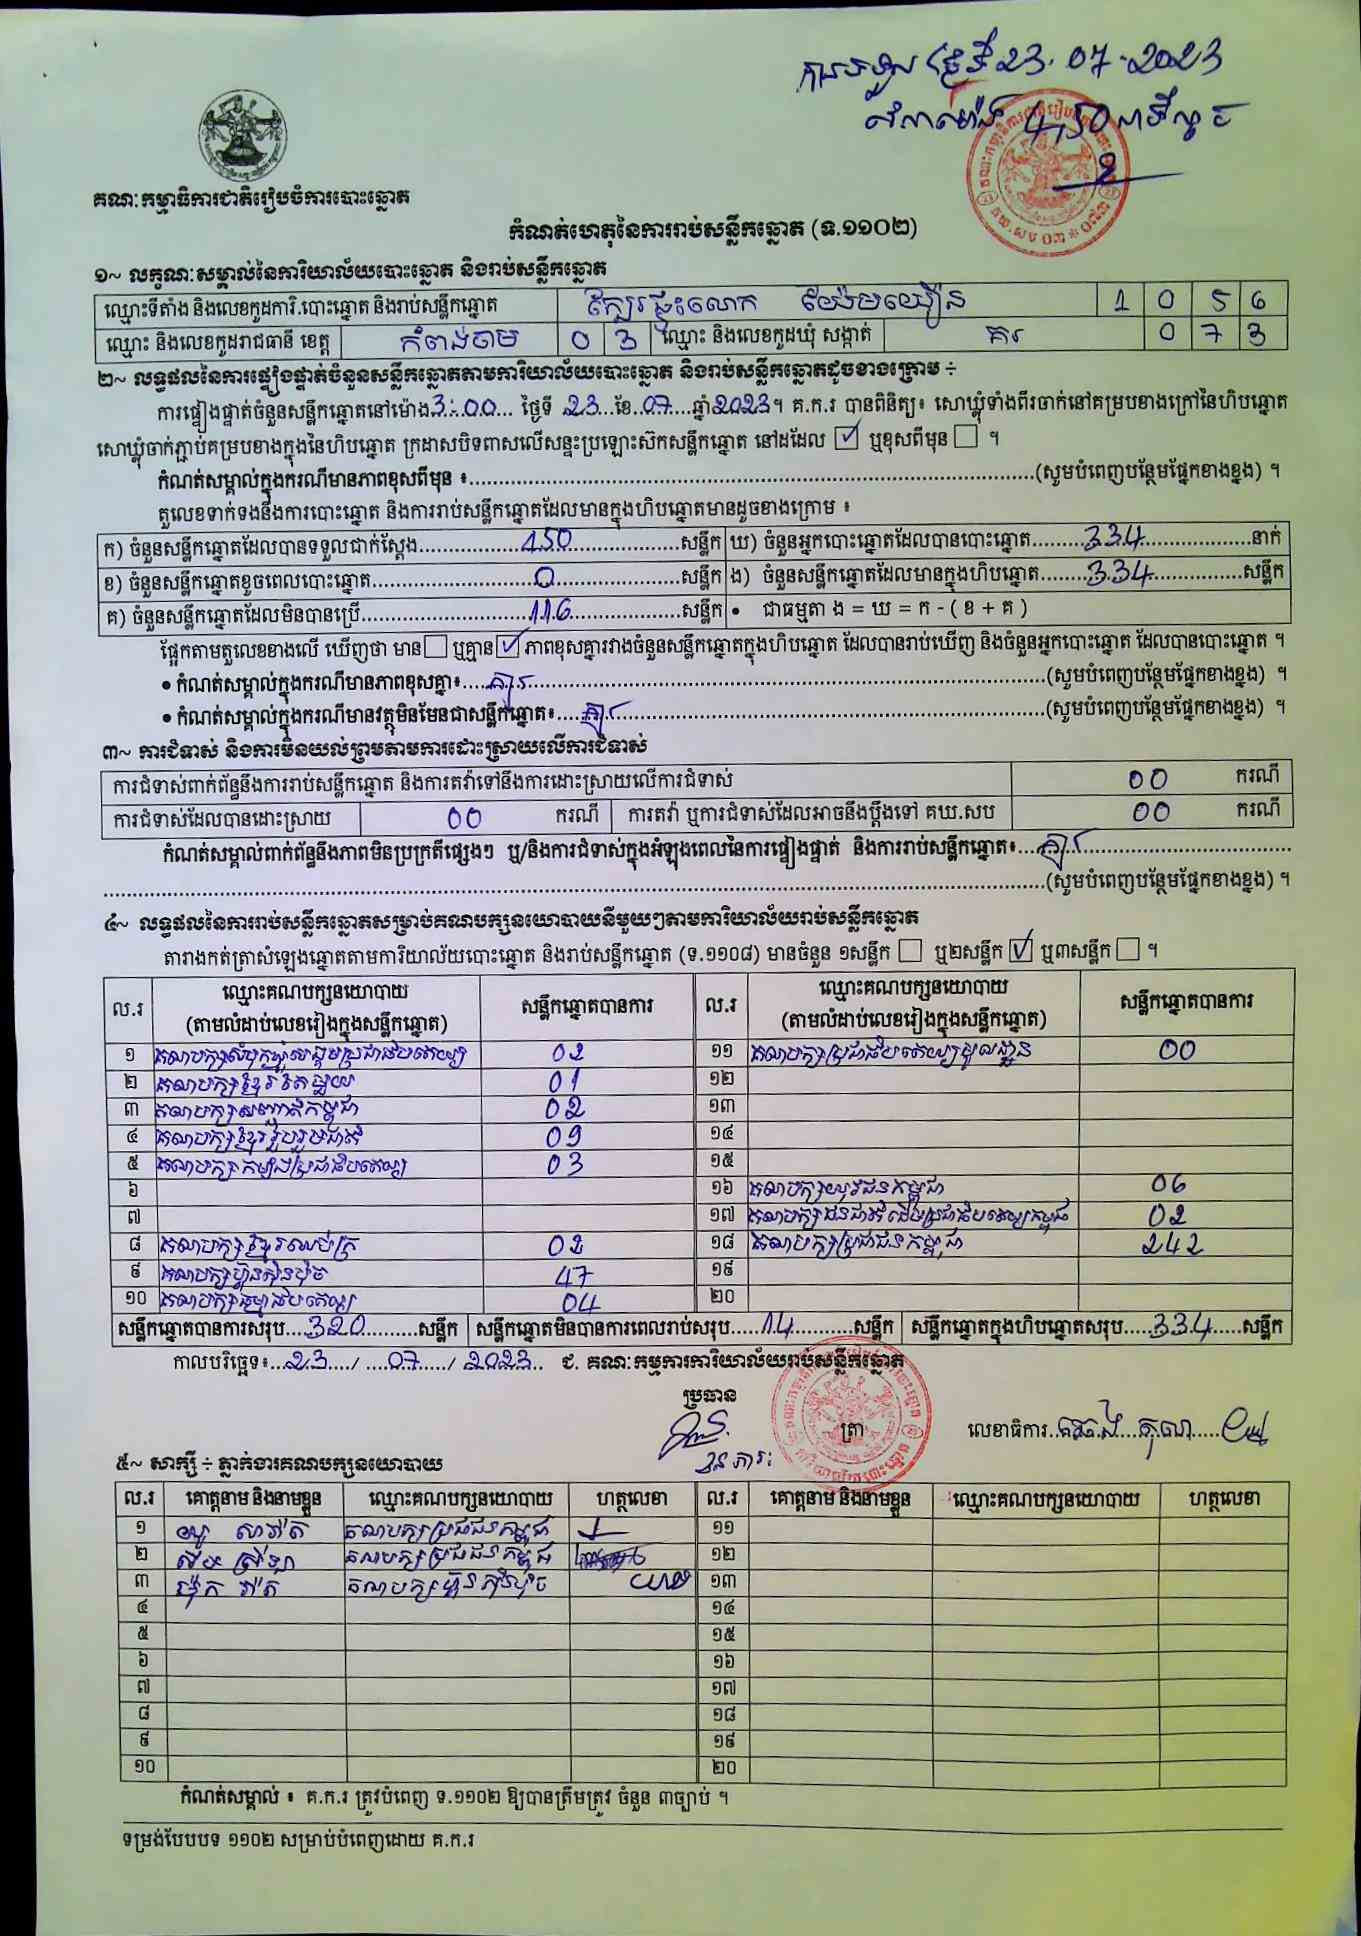 ថ្ងៃទី 23.07.2023
4,50
គណៈកម្មាធិការជាតិរៀបចំការបោះឆ្នោត
កំណត់ហេតុនៃការរាប់សន្លឹកឆ្នោត (ទ.១១០២)
១~ លក្ខណៈសម្គាល់នៃការិយាល័យបោះឆ្នោត និងរាប់សន្លឹកឆ្នោត
ឈ្មោះទីតាំង និងលេខកូដការិ.បោះឆ្នោត និងរាប់សន្លឹកឆ្នោត ក្បែរផ្ទះលោក យ៉ែមយឿន 1 0 5 6
ឈ្មោះ និងលេខកូដរាជធានី ខេត្ត កំពង់ចាម 0 3 ឈ្មោះ និងលេខកូដឃុំ សង្កាត់ គរ 0 7 3
២~ លទ្ធផលនៃការផ្ទៀងផ្ទាត់ចំនួនសន្លឹកឆ្នោតតាមការិយាល័យបោះឆ្នោត និងរាប់សន្លឹកឆ្នោតដូចខាងក្រោម ÷
ការផ្ទៀងផ្ទាត់ចំនួនសន្លឹកឆ្នោតនៅម៉ោង 3:00 ថ្ងៃទី 23 ខែ 07 ឆ្នាំ 2023។ គ.ក.រ បានពិនិត្យ៖ សោឃ្លុំទាំងពីរចាក់នៅគម្របខាងក្រៅនៃហិបឆ្នោត
សោឃ្លុំចាក់ភ្ជាប់គម្របខាងក្នុងនៃហិបឆ្នោត ក្រដាសបិទពាសលើសន្ទះប្រឡោះស៊កសន្លឹកឆ្នោត នៅដដែល ☑ ឬខុសពីមុន ☐ ។
កំណត់សម្គាល់ក្នុងករណីមានភាពខុសពីមុន ៖ (សូមបំពេញបន្ថែមផ្នែកខាងខ្នង) ។
តួលេខទាក់ទងនឹងការបោះឆ្នោត និងការរាប់សន្លឹកឆ្នោតដែលមានក្នុងហិបឆ្នោតមានដូចខាងក្រោម ៖
ក) ចំនួនសន្លឹកឆ្នោតដែលបានទទួលជាក់ស្តែង 450 សន្លឹក ឃ) ចំនួនអ្នកបោះឆ្នោតដែលបានបោះឆ្នោត 334 នាក់
ខ) ចំនួនសន្លឹកឆ្នោតខូចពេលបោះឆ្នោត 0 សន្លឹក ង) ចំនួនសន្លឹកឆ្នោតដែលមានក្នុងហិបឆ្នោត 334 សន្លឹក
គ) ចំនួនសន្លឹកឆ្នោតដែលមិនបានប្រើ 116 សន្លឹក • ជាធម្មតា ង = ឃ = ក - ( ខ + គ )
ផ្អែកតាមតួលេខខាងលើ ឃើញថា មាន ☐ ឬគ្មាន ☑ ភាពខុសគ្នារវាងចំនួនសន្លឹកឆ្នោតក្នុងហិបឆ្នោត ដែលបានរាប់ឃើញ និងចំនួនអ្នកបោះឆ្នោត ដែលបានបោះឆ្នោត ។
• កំណត់សម្គាល់ក្នុងករណីមានភាពខុសគ្នា៖ គ្មាន (សូមបំពេញបន្ថែមផ្នែកខាងខ្នង) ។
• កំណត់សម្គាល់ក្នុងករណីមានវត្ថុមិនមែនជាសន្លឹកឆ្នោត៖ គ្មាន (សូមបំពេញបន្ថែមផ្នែកខាងខ្នង) ។
៣~ ការជំទាស់ និងការមិនយល់ព្រមតាមការដោះស្រាយលើការជំទាស់
ការជំទាស់ពាក់ព័ន្ធនឹងការរាប់សន្លឹកឆ្នោត និងការតវ៉ាទៅនឹងការដោះស្រាយលើការជំទាស់ 00 ករណី
ការជំទាស់ដែលបានដោះស្រាយ 00 ករណី ការតវ៉ា ឬការជំទាស់ដែលអាចនឹងប្តឹងទៅ គឃ.សប 00 ករណី
កំណត់សម្គាល់ពាក់ព័ន្ធនឹងភាពមិនប្រក្រតីផ្សេងៗ ឬ/និងការជំទាស់ក្នុងអំឡុងពេលនៃការផ្ទៀងផ្ទាត់ និងការរាប់សន្លឹកឆ្នោត៖ គ្មាន
(សូមបំពេញបន្ថែមផ្នែកខាងខ្នង) ។
៤~ លទ្ធផលនៃការរាប់សន្លឹកឆ្នោតសម្រាប់គណបក្សនយោបាយនីមួយៗតាមការិយាល័យរាប់សន្លឹកឆ្នោត
តារាងកត់ត្រាសំឡេងឆ្នោតតាមការិយាល័យបោះឆ្នោត និងរាប់សន្លឹកឆ្នោត (ទ.១១០៨) មានចំនួន ១សន្លឹក ☐ ឬ២សន្លឹក ☑ ឬ៣សន្លឹក ☐ ។
ល.រ ឈ្មោះគណបក្សនយោបាយ (តាមលំដាប់លេខរៀងក្នុងសន្លឹកឆ្នោត) សន្លឹកឆ្នោតបានការ ល.រ ឈ្មោះគណបក្សនយោបាយ (តាមលំដាប់លេខរៀងក្នុងសន្លឹកឆ្នោត) សន្លឹកឆ្នោតបានការ
១ គណបក្សសំបុកឃ្មុំសង្គមប្រជាធិបតេយ្យ 02 ១១ គណបក្សប្រជាធិបតេយ្យមូលដ្ឋាន 00
២ គណបក្សខ្មែរតែមួយ 01 ១២
៣ គណបក្សសញ្ជាតិកម្ពុជា 02 ១៣
៤ គណបក្សខ្មែររួបរួមជាតិ 09 ១៤
៥ គណបក្សកម្លាំងប្រជាធិបតេយ្យ 03 ១៥
៦ ១៦ គណបក្សយុវជនកម្ពុជា 06
៧ ១៧ គណបក្សជនជាតិដើមប្រជាធិបតេយ្យកម្ពុជា 02
៨ គណបក្សខ្មែរឈប់ក្រ 02 ១៨ គណបក្សប្រជាជនកម្ពុជា 242
៩ គណបក្សហ្វ៊ុនស៊ិនប៉ិច 47 ១៩
១០ គណបក្សធម្មាធិបតេយ្យ 04 ២០
សន្លឹកឆ្នោតបានការសរុប 320 សន្លឹក សន្លឹកឆ្នោតមិនបានការពេលរាប់សរុប 14 សន្លឹក សន្លឹកឆ្នោតក្នុងហិបឆ្នោតសរុប 334 សន្លឹក
កាលបរិច្ឆេទ៖ 23 / 07 / 2023 ជ. គណៈកម្មការការិយាល័យរាប់សន្លឹកឆ្នោត
ប្រធាន
ត្រា
លេខាធិការ
៥~ សាក្សី ÷ ភ្នាក់ងារគណបក្សនយោបាយ
ល.រ គោត្តនាម និងនាមខ្លួន ឈ្មោះគណបក្សនយោបាយ ហត្ថលេខា ល.រ គោត្តនាម និងនាមខ្លួន ឈ្មោះគណបក្សនយោបាយ ហត្ថលេខា
១ គណបក្សប្រជាជនកម្ពុជា ១១
២ គណបក្សប្រជាជនកម្ពុជា ១២
៣ គណបក្សហ្វ៊ុនស៊ិនប៉ិច ១៣
៤ ១៤
៥ ១៥
៦ ១៦
៧ ១៧
៨ ១៨
៩ ១៩
១០ ២០
កំណត់សម្គាល់ ៖ គ.ក.រ ត្រូវបំពេញ ទ.១១០២ ឱ្យបានត្រឹមត្រូវ ចំនួន ៣ច្បាប់ ។
ទម្រង់បែបបទ ១១០២ សម្រាប់បំពេញដោយ គ.ក.រ